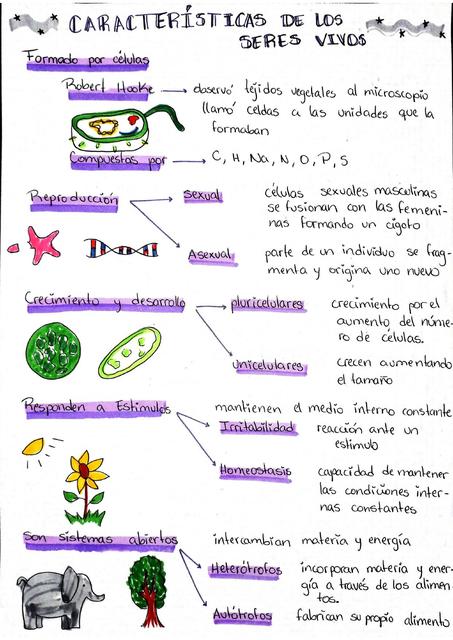 CARACTERÍSTICAS DE LOS
SERES VIVOS
Formado por células
Robert Hooke → observó tejidos vegetales al microscopio
llamó celdas a las unidades que la
formaban
Compuestos por → C, H, Na, N, O, P, S
Reproducción
sexual
células sexuales masculinas
se fusionan con las femeni-
nas formando un cigoto
Asexual
parte de un individuo se frag-
menta y origina uno nuevo
Crecimiento y desarrollo
pluricelulares
crecimiento por el
aumento del núme-
ro de células.
Unicelulares
crecen aumentando
el tamaño
Responden a Estímulos
mantienen el medio interno constante
Irritabilidad
reacción ante un
estimulo
Homeostasis
capacidad de mantener
las condiciones inter-
nas constantes
Son sistemas abiertos
intercambian materia y energía
Heterótrofos
incorporan materia y ener-
gía a través de los alimen
tos.
Autótrofos
fabrican su propio alimento